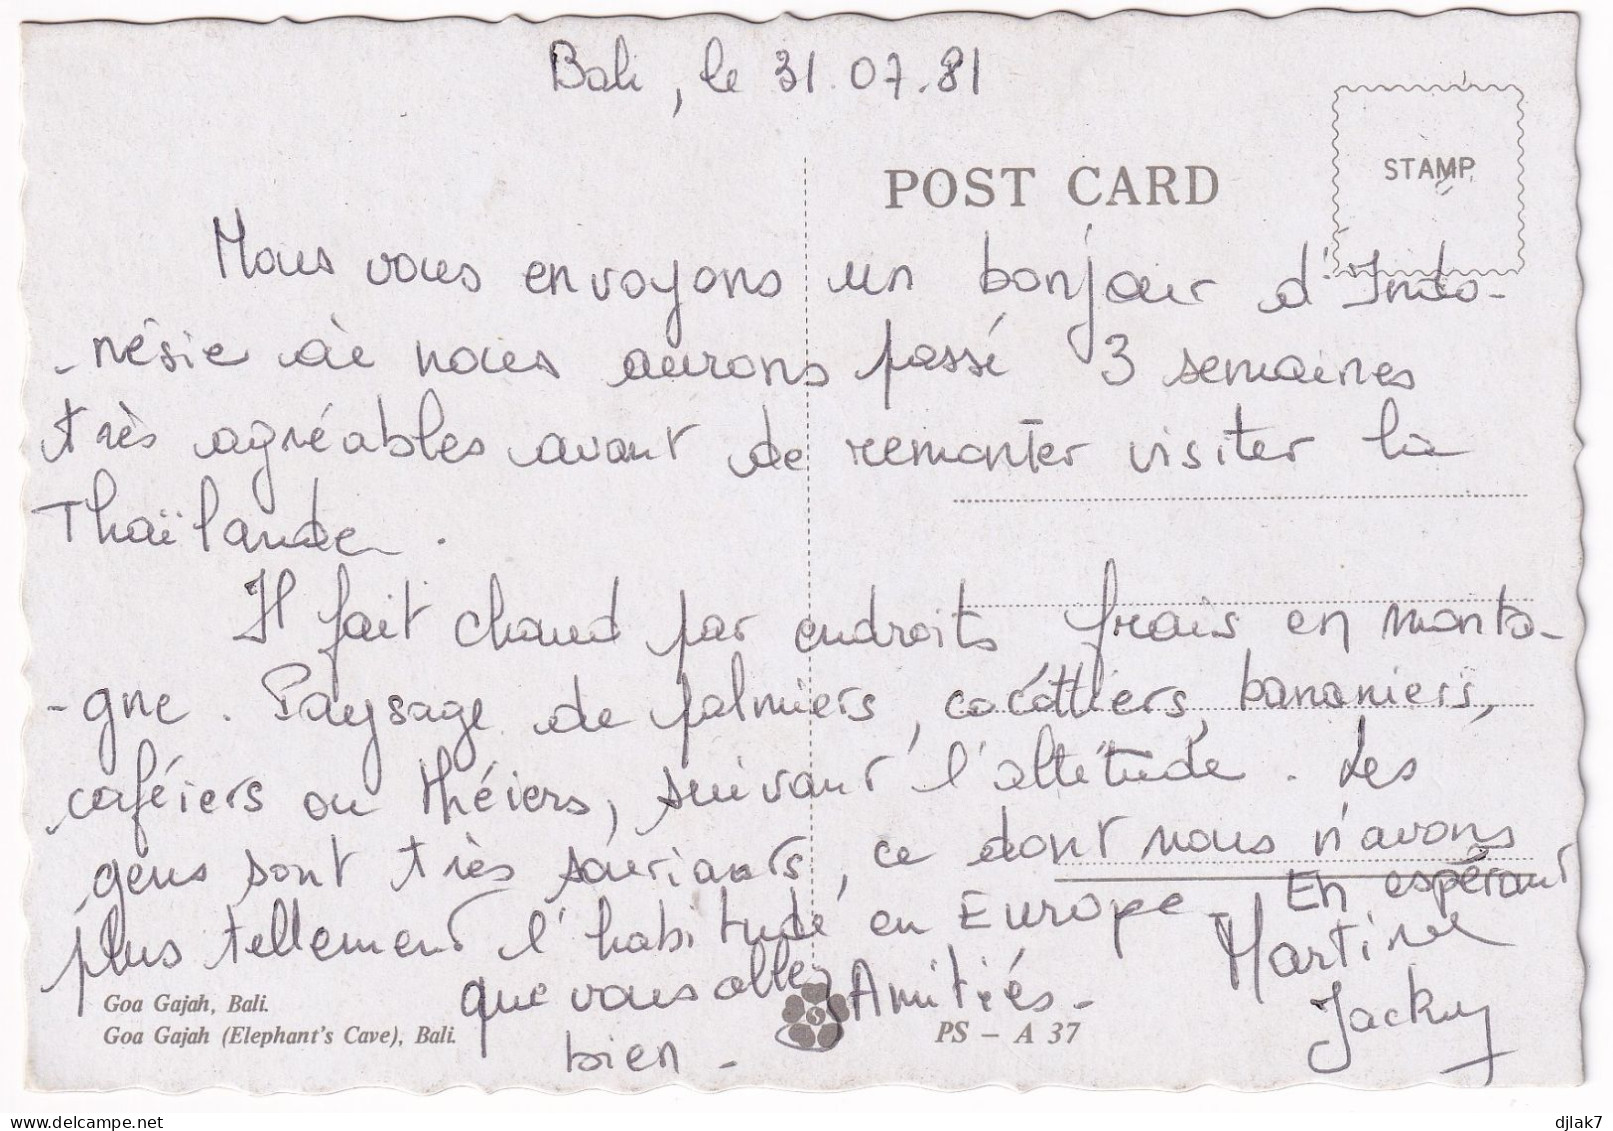 Bali, le 31.07.81
POST CARD
STAMP
Nous vous envoyons un bonjour d'Indo-
-nésie où nous aurons passé 3 semaines
très agréables avant de remonter visiter la
Thaïlande.
Il fait chaud par endroits frais en monta-
-gne. Paysage de palmiers, cocottiers, bananiers,
caféiers ou théiers, suivant l'altitude. Les
gens sont très souriants, ce dont nous n'avons
plus tellement l'habitude en Europe. En espérant
que vous allez
bien -
Amitiés -
Martine
Jacky
Goa Gajah, Bali.
Goa Gajah (Elephant's Cave), Bali.
PS – A 37
djlak7